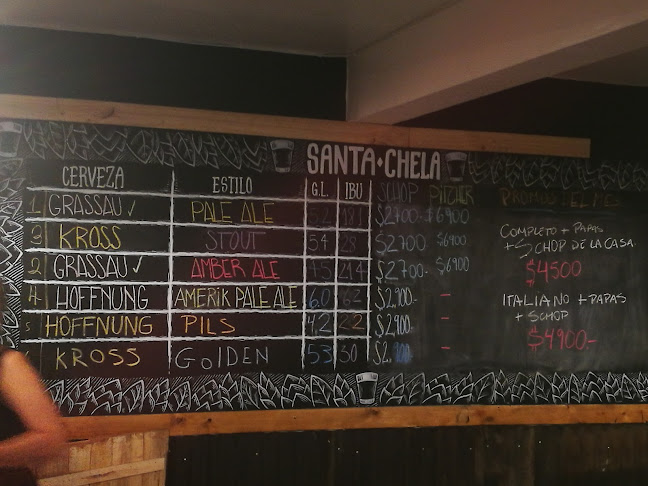 SANTA • CHELA
CERVEZA ESTILO G.L. IBU SCHOP PITCHER
1 GRASSAU ✓ PALE ALE $2700- $6900
3 KROSS STOUT 5.4 28 $2.700 $6900
2 GRASSAU ✓ AMBER ALE 4.5 21.4 $2.700- $6900
4 HOFFNUNG AMERIK PALE ALE 6.0 62 $2.900- -
5 HOFFNUNG PILS 4.2 22 $2.900- -
KROSS GOLDEN 5.3 30 $2.900 -
COMPLETO + PAPAS
+ SCHOP DE LA CASA
$4500
ITALIANO + PAPAS
+ SCHOP
$4900-